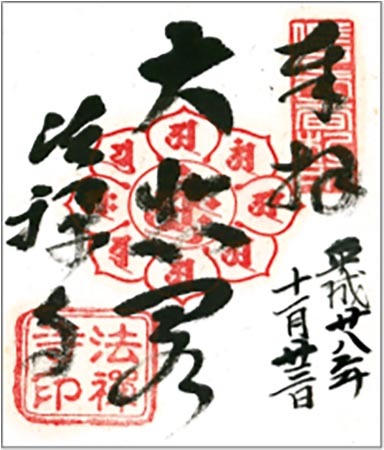 奉拝
平成廿八年
十一月廿三日
大悲閣
法禅寺
法禅
寺印